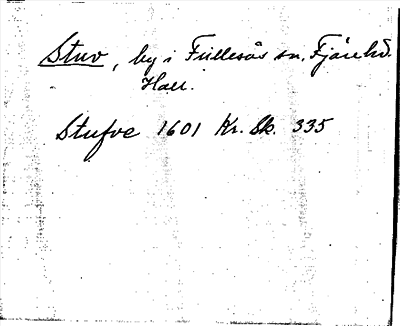 Stuv, by i Frillesås sn, Fjäre hd.
Hall.
Stufve 1601 Kr. Sk. 335